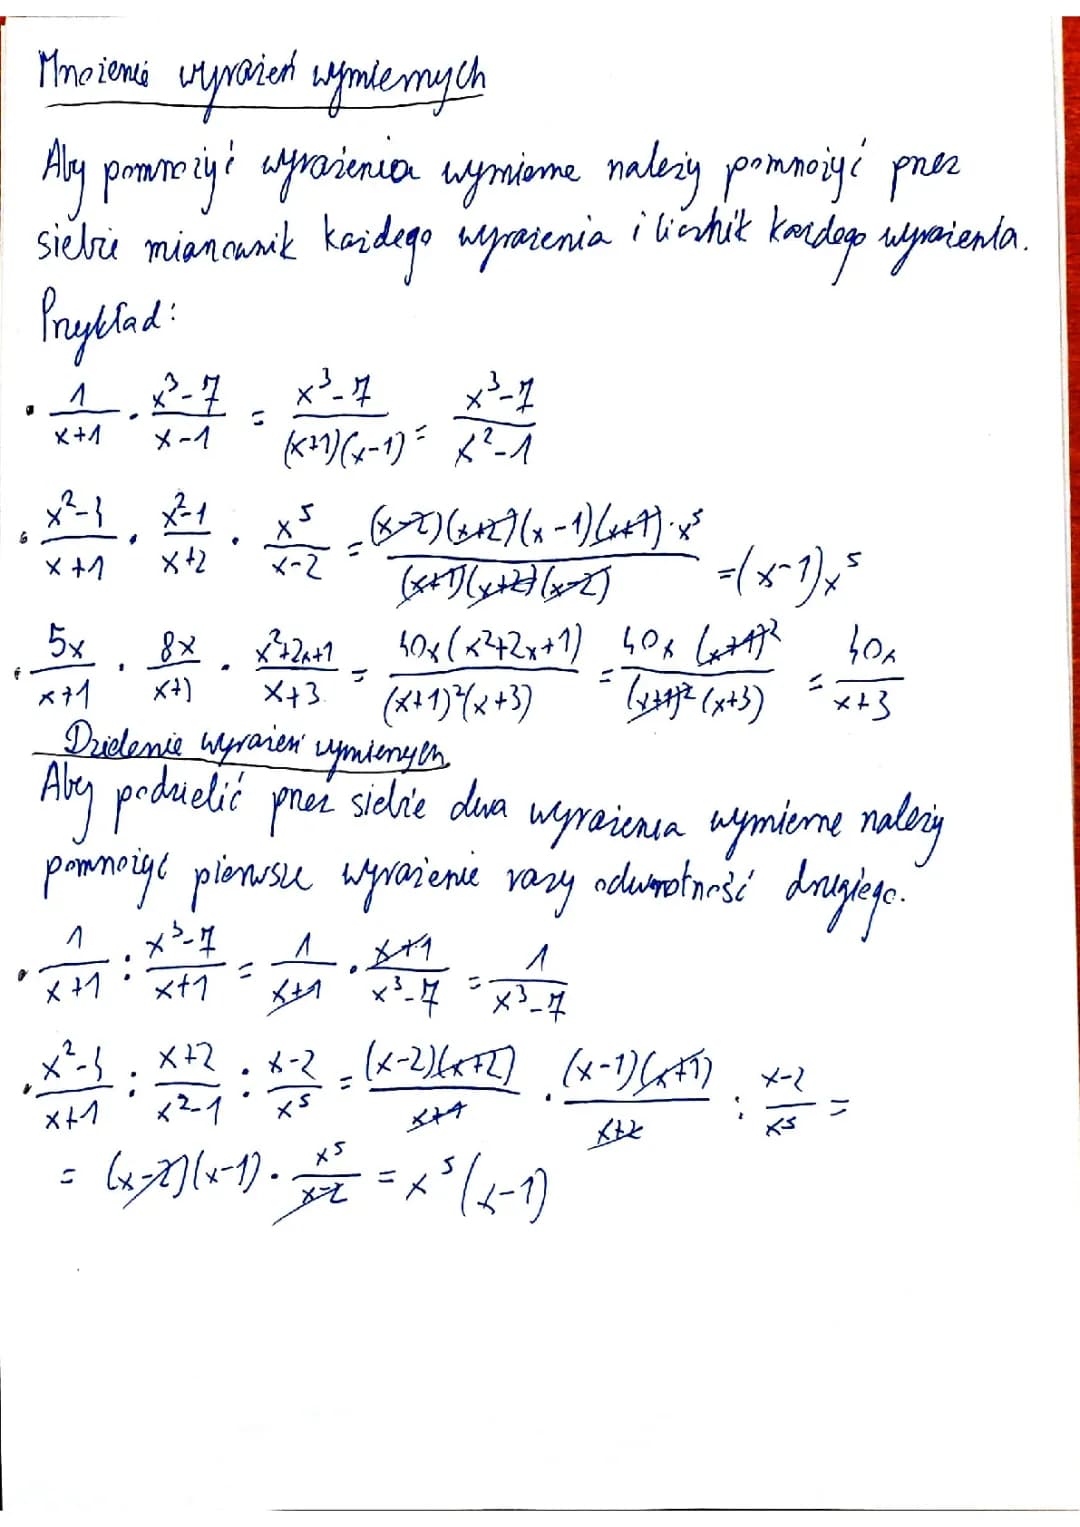 Mnożenie wyrażeń wymiernych
Aby pomnożyć wyrażenia wymierne należy pomnożyć przez
siebie mianownik każdego wyrażenia i licznik każdego wyrażenia.
Przykład:
• 1/(x+1) · (x³-7)/(x-1) = (x³-7)/((x+1)(x-1)) = (x³-7)/(x²-1)
• (x²-4)/(x+1) · (x²-1)/(x+2) · x⁵/(x-2) = ((x-2)(x+2)(x-1)(x+1)·x⁵)/((x+1)(x+2)(x-2)) = (x-1)x⁵
• 5x/(x+1) · 8x/(x+1) · (x²+2x+1)/(x+3) = 40x(x²+2x+1)/((x+1)²(x+3)) = 40x(x+1)²/((x+1)²(x+3)) = 40x/(x+3)
Dzielenie wyrażeń wymiernych
Aby podzielić przez siebie dwa wyrażenia wymierne należy
pomnożyć pierwsze wyrażenie razy odwrotność drugiego.
• 1/(x+1) : (x³-7)/(x+1) = 1/(x+1) · (x+1)/(x³-7) = 1/(x³-7)
• (x²-4)/(x+1) : (x+2)/(x²-1) : (x-2)/x⁵ = ((x-2)(x+2))/(x+1) · ((x-1)(x+1))/(x+2) : (x-2)/x⁵ =
= (x-2)(x-1) · x⁵/(x-2) = x⁵(x-1)